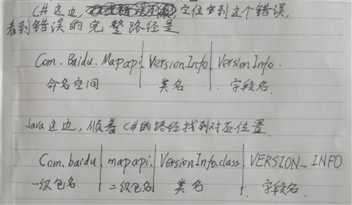 C#这边 定位到这个错误,
看到错误的完整路径是
Com.Baidu.Mapapi|VersionInfo|VersionInfo.
命名空间 类名 字段名
Java这边,顺着C#的路径找到对应位置
Com.baidu|mapapi.|VersionInfo.class|VERSION_INFO
一级包名 二级包名 类名 字段名